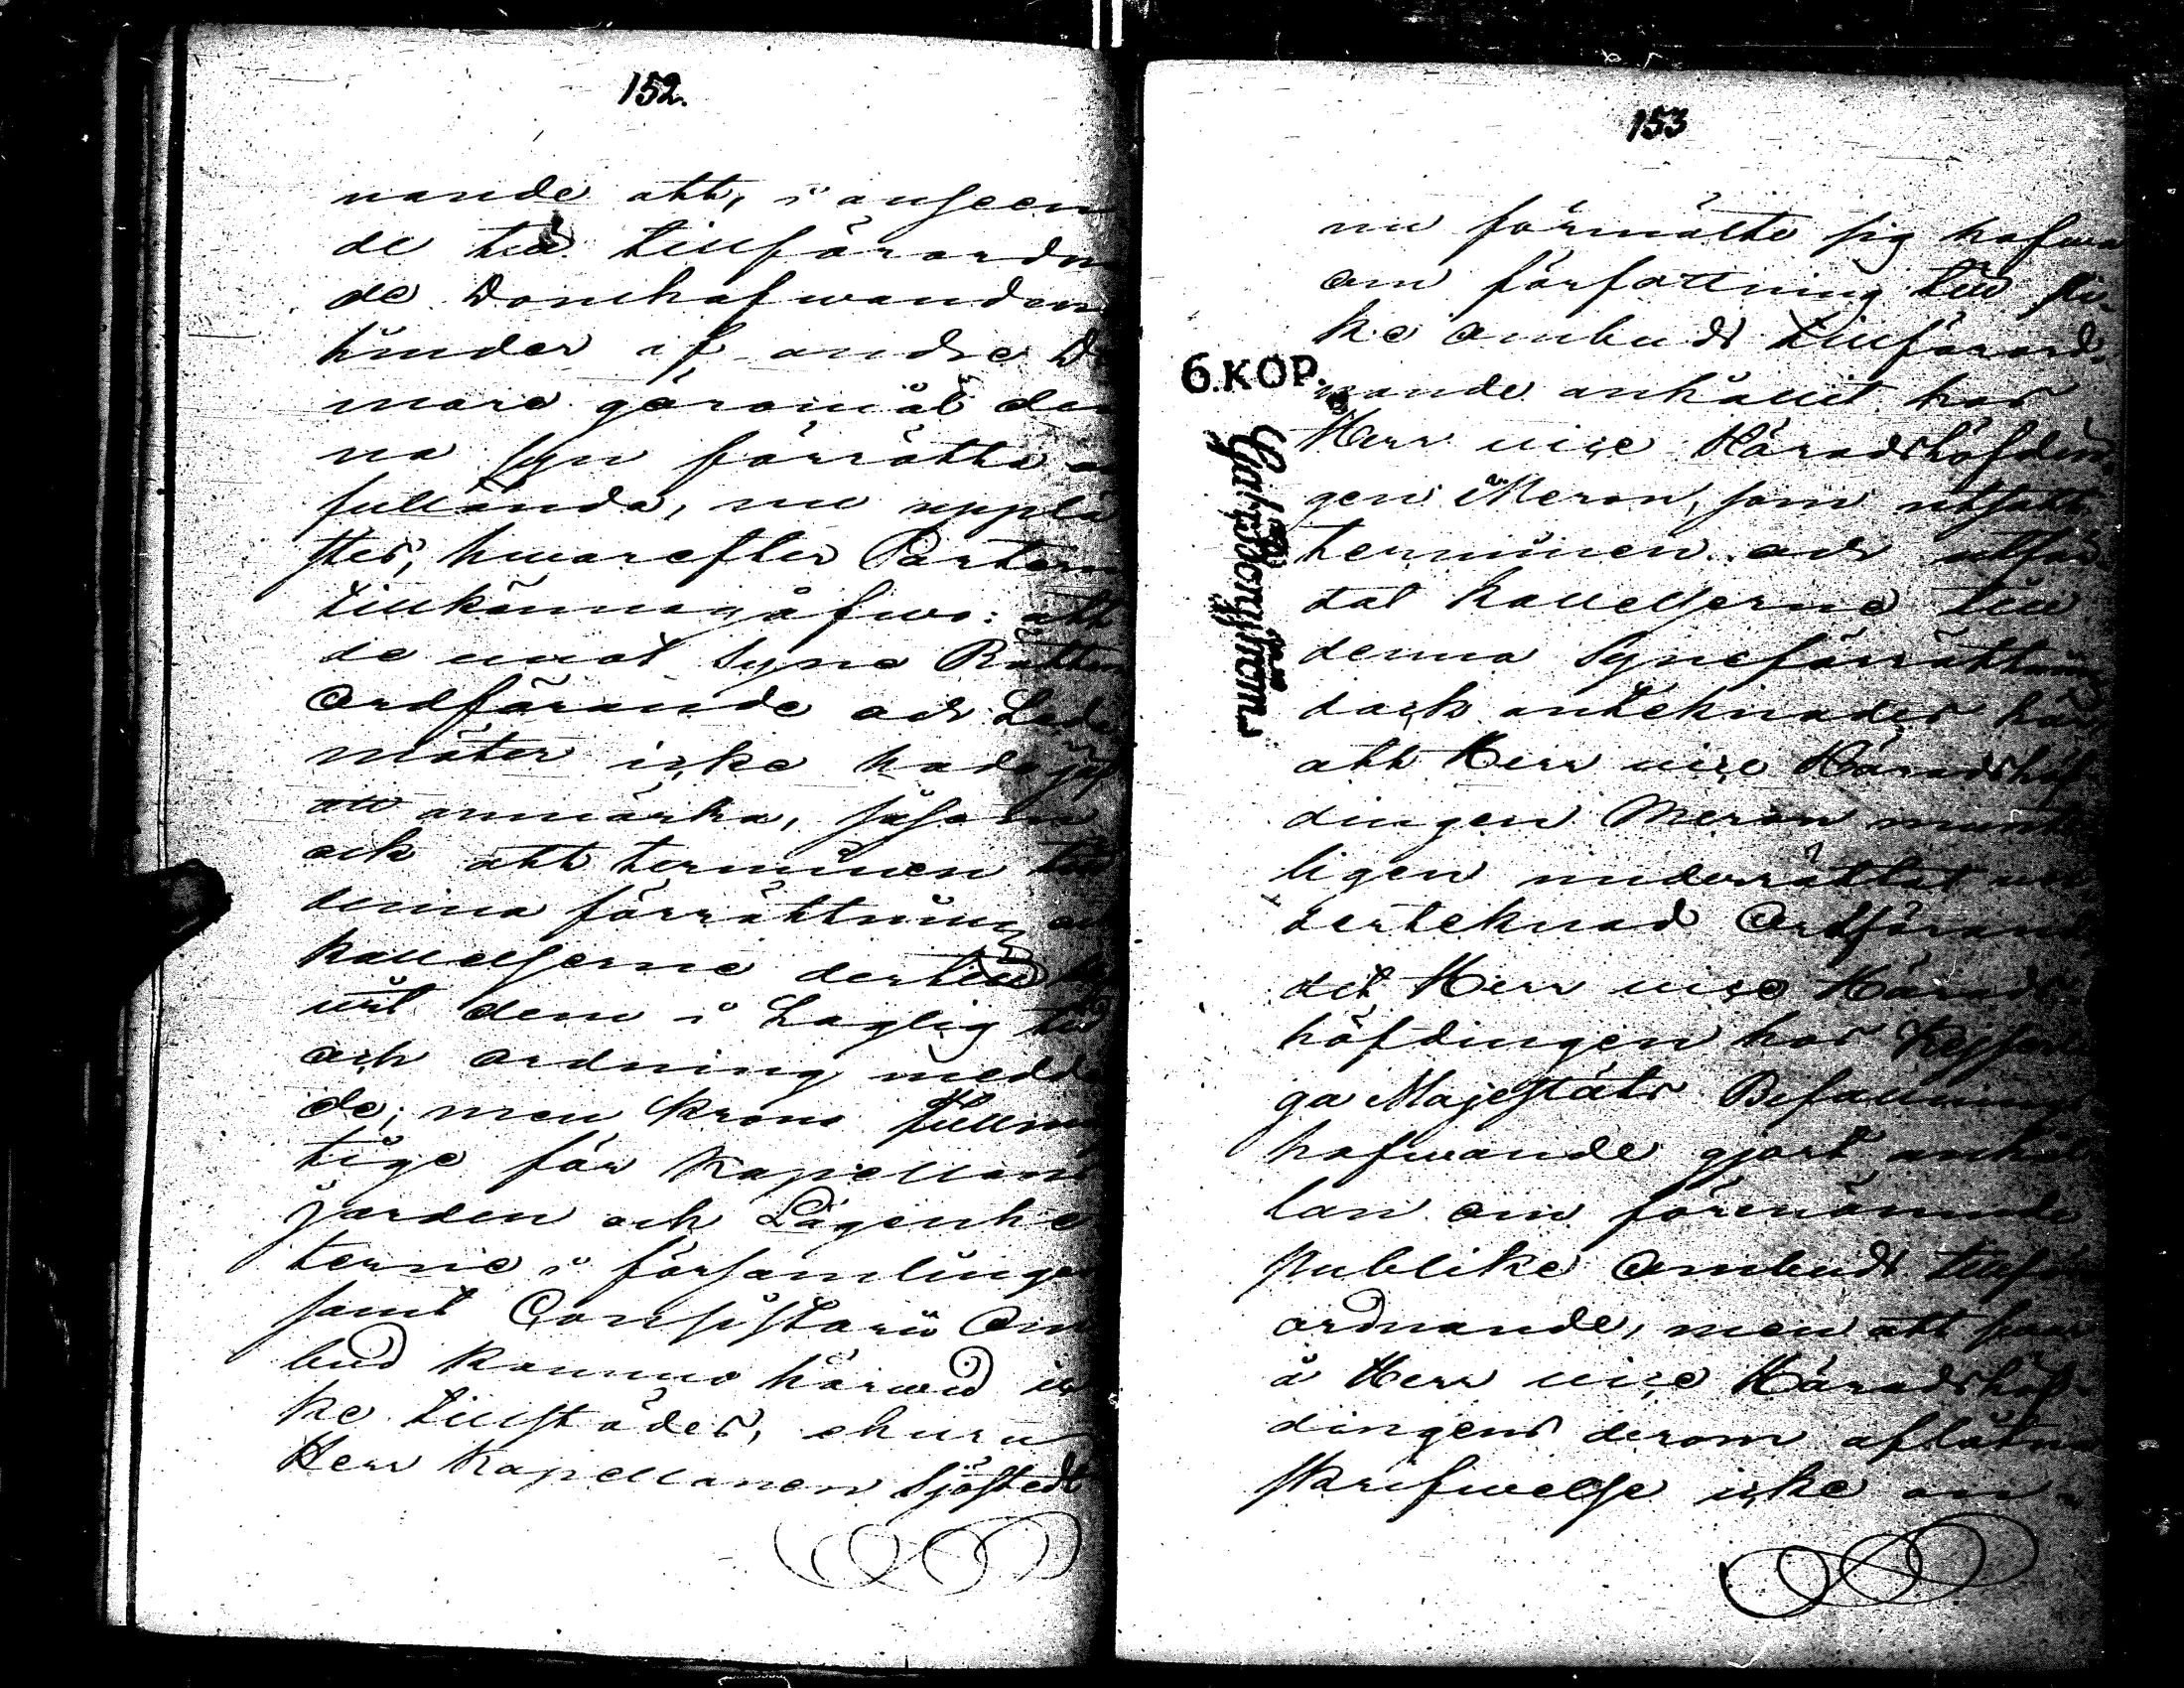 152.
nande att, i anseen
de till tillförordn
de Domhafwanden
hinder af andre Do
mare göromål den
na syn förrätta
fullända, nu upplä
stes, hwarefter Parterne
tillkännagåfwo: att
de emot Syne Rätten
Ordförande och Lede
möter icke hade jäf
att anmärka, såsom
ock att terminen till
denna förrättning
kallelserne dertill
wist dem i Laglig tid
och ordning medde
de; men Krono fullm
tige för Kapellans
jorden och Lägenhe
terne i församlingen
samt Consistorii Om
bud kommo härwid ic
ke tillstädes, ehuru
Herr Kapellanen Sjöstedt
153
nu förmälte sig hafwa
om författning till sli
ke ombuds tillförord
nande anhållit hos
Herr vice Häradshöfdin
gen Meron, som utsatt
terminen och utfär
dat kallelserne till
denna Syneförrättning
dock antecknades här
att Herr vice Häradshöf
dingen Meron munt
ligen underrättat un
dertecknad Ordförande
det Herr vice Härads
höfdingen hos Kejserli
ga Majestäts Befallnings
hafwande gjort anhål
lan om förenämnde
publike Ombuds tillför
ordnande, men att swar
å Herr vice Häradshöf
dingens derom aflåtna
skrifwelse icke an
6. KOP.